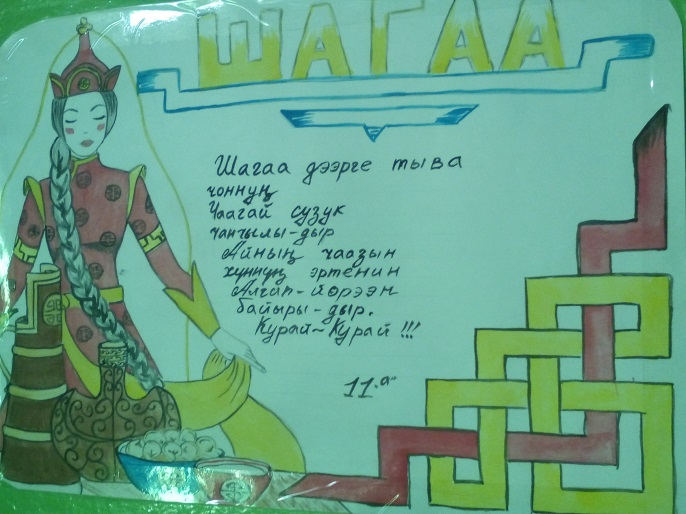 ШАГАА
Шагаа дээрге тыва
чоннуң
Чаагай сузук
чаңчылы-дыр
Айның чаазын
хүннүң эртенин
Алгап-йөрээн
байыры-дыр.
Курай-Курай !!!
11 "а"